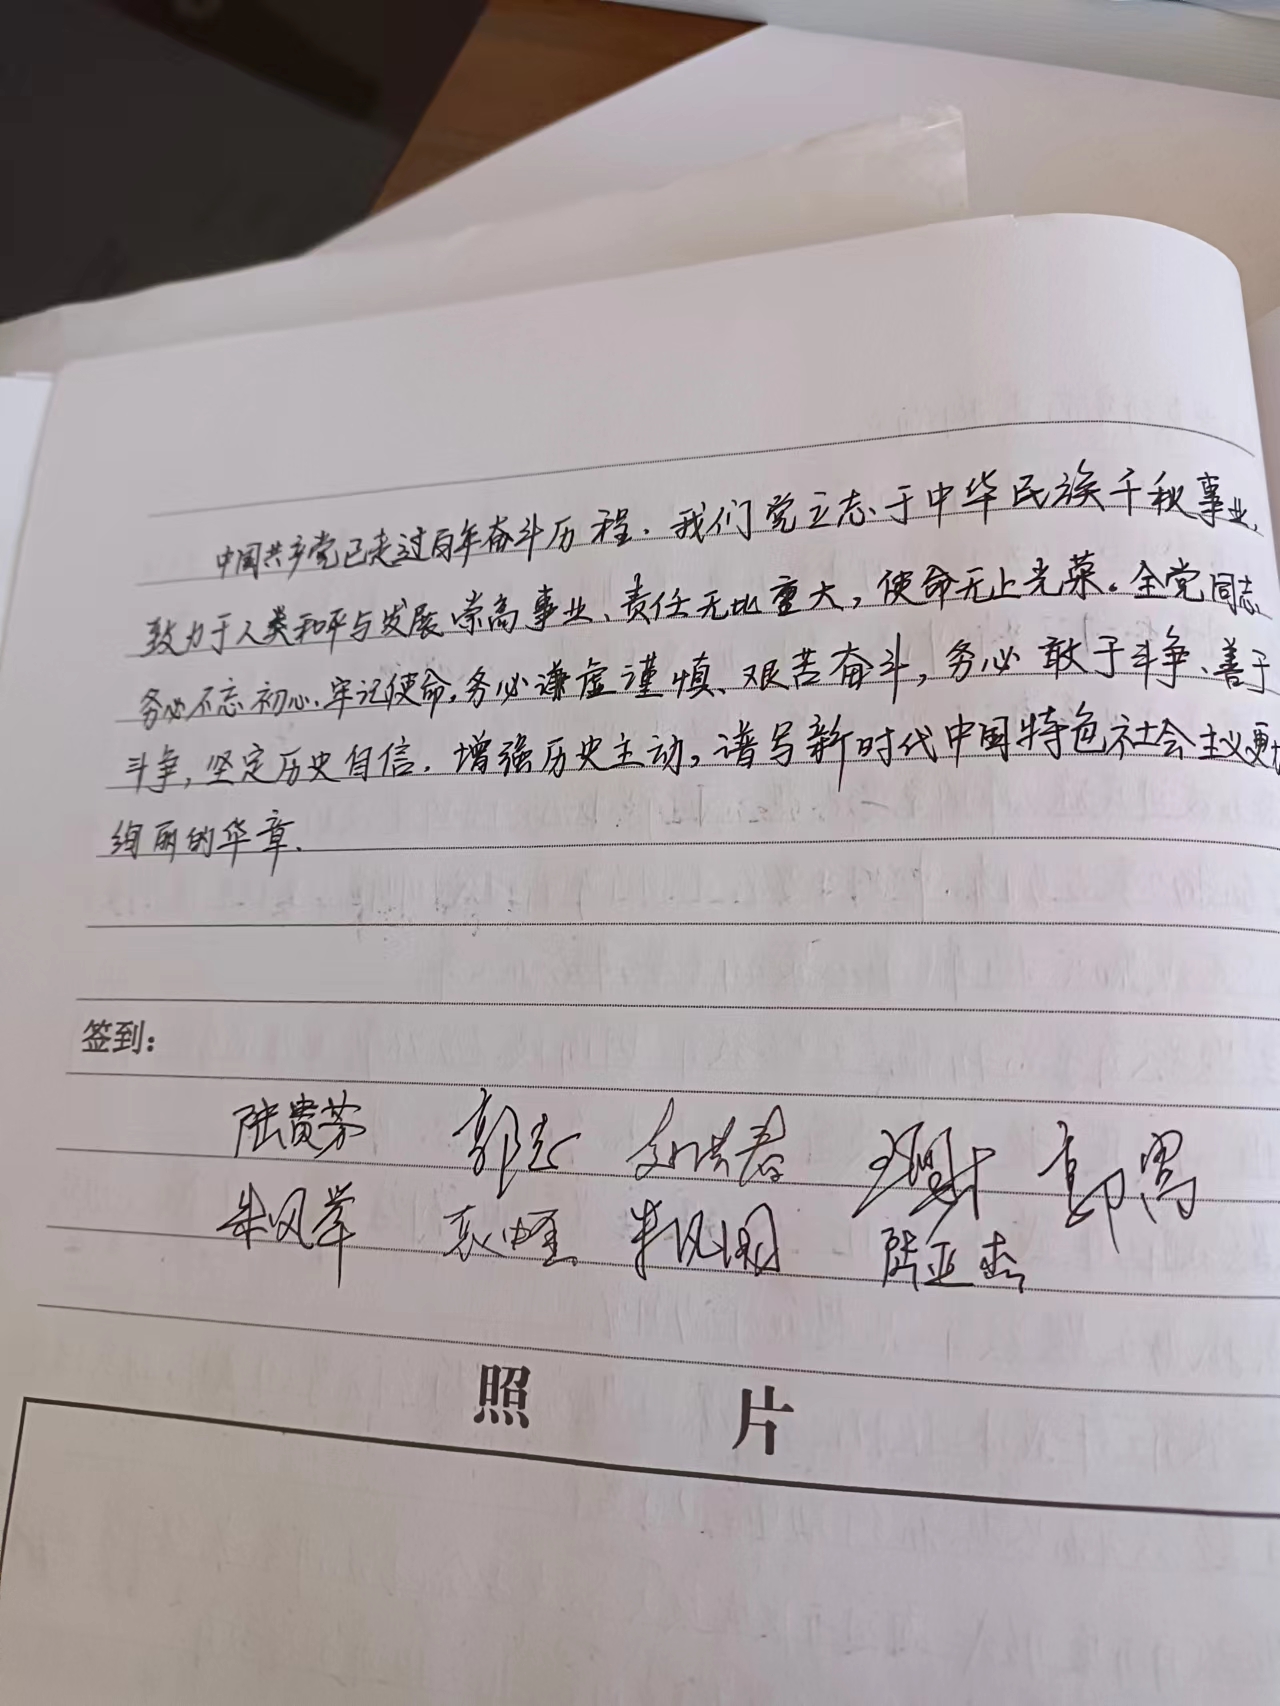 中国共产党已走过百年奋斗历程.我们党立志于中华民族千秋事业、
致力于人类和平与发展崇高事业、责任无比重大,使命无上光荣。全党同志
务必不忘初心、牢记使命,务必谦虚谨慎、艰苦奋斗,务必敢于斗争、善于
斗争,坚定历史自信.增强历史主动,谱写新时代中国特色社会主义更加
绚丽的华章.
签到:
陆贵芬
朱凤举 陆亚杰
照 片